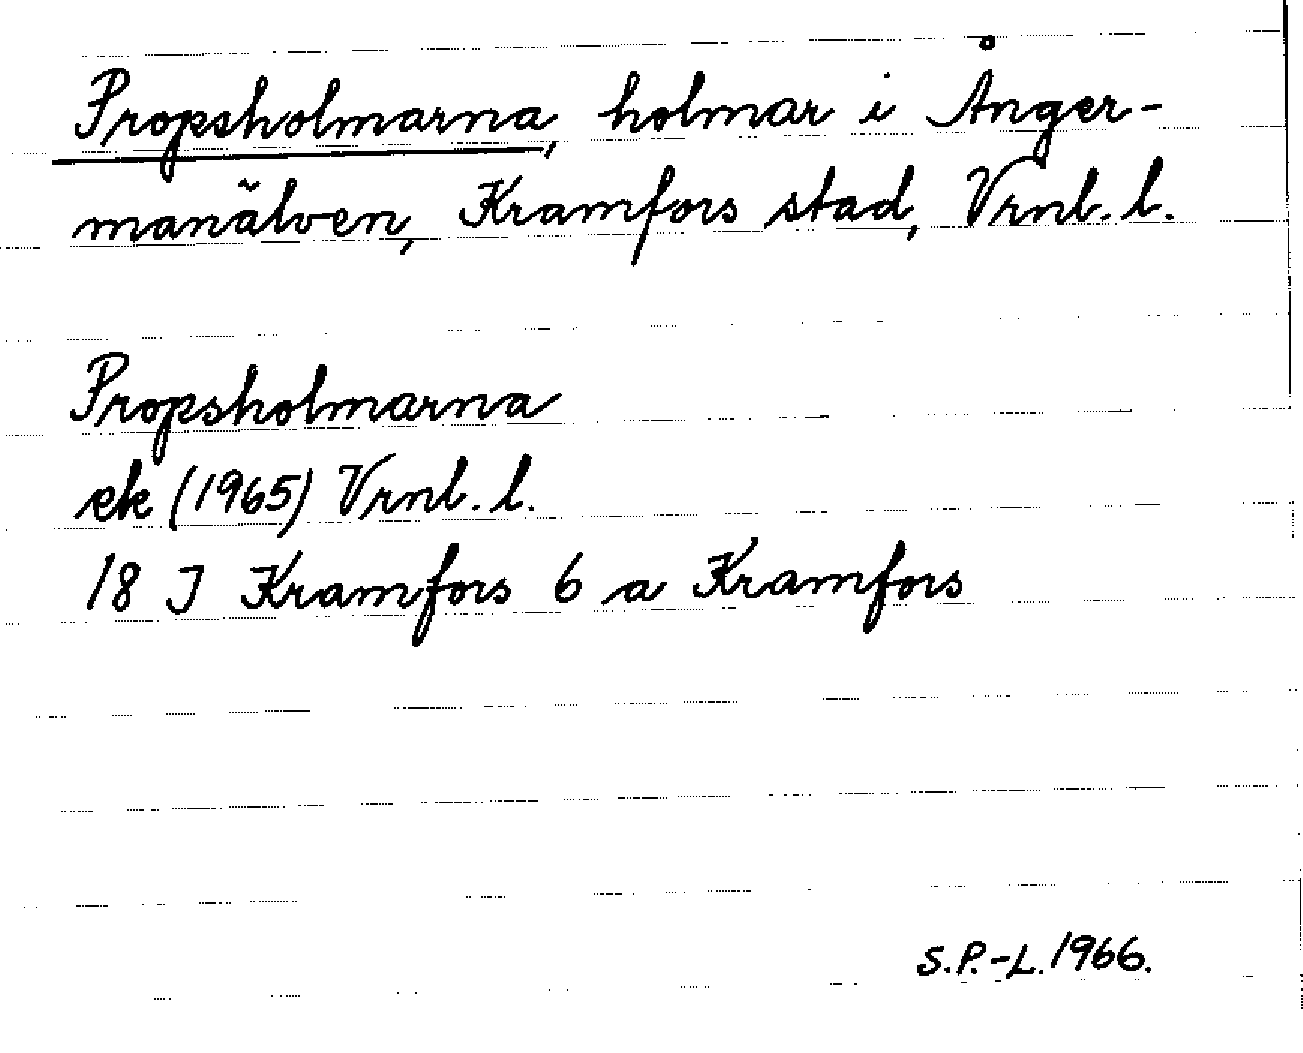 Propsholmarna, holmar i Ånger-
manälven, Kramfors stad, Vrnl. l.
Propsholmarna
ek (1965) Vrnl. l.
18 I Kramfors 6 a Kramfors
S.P.-L. 1966.